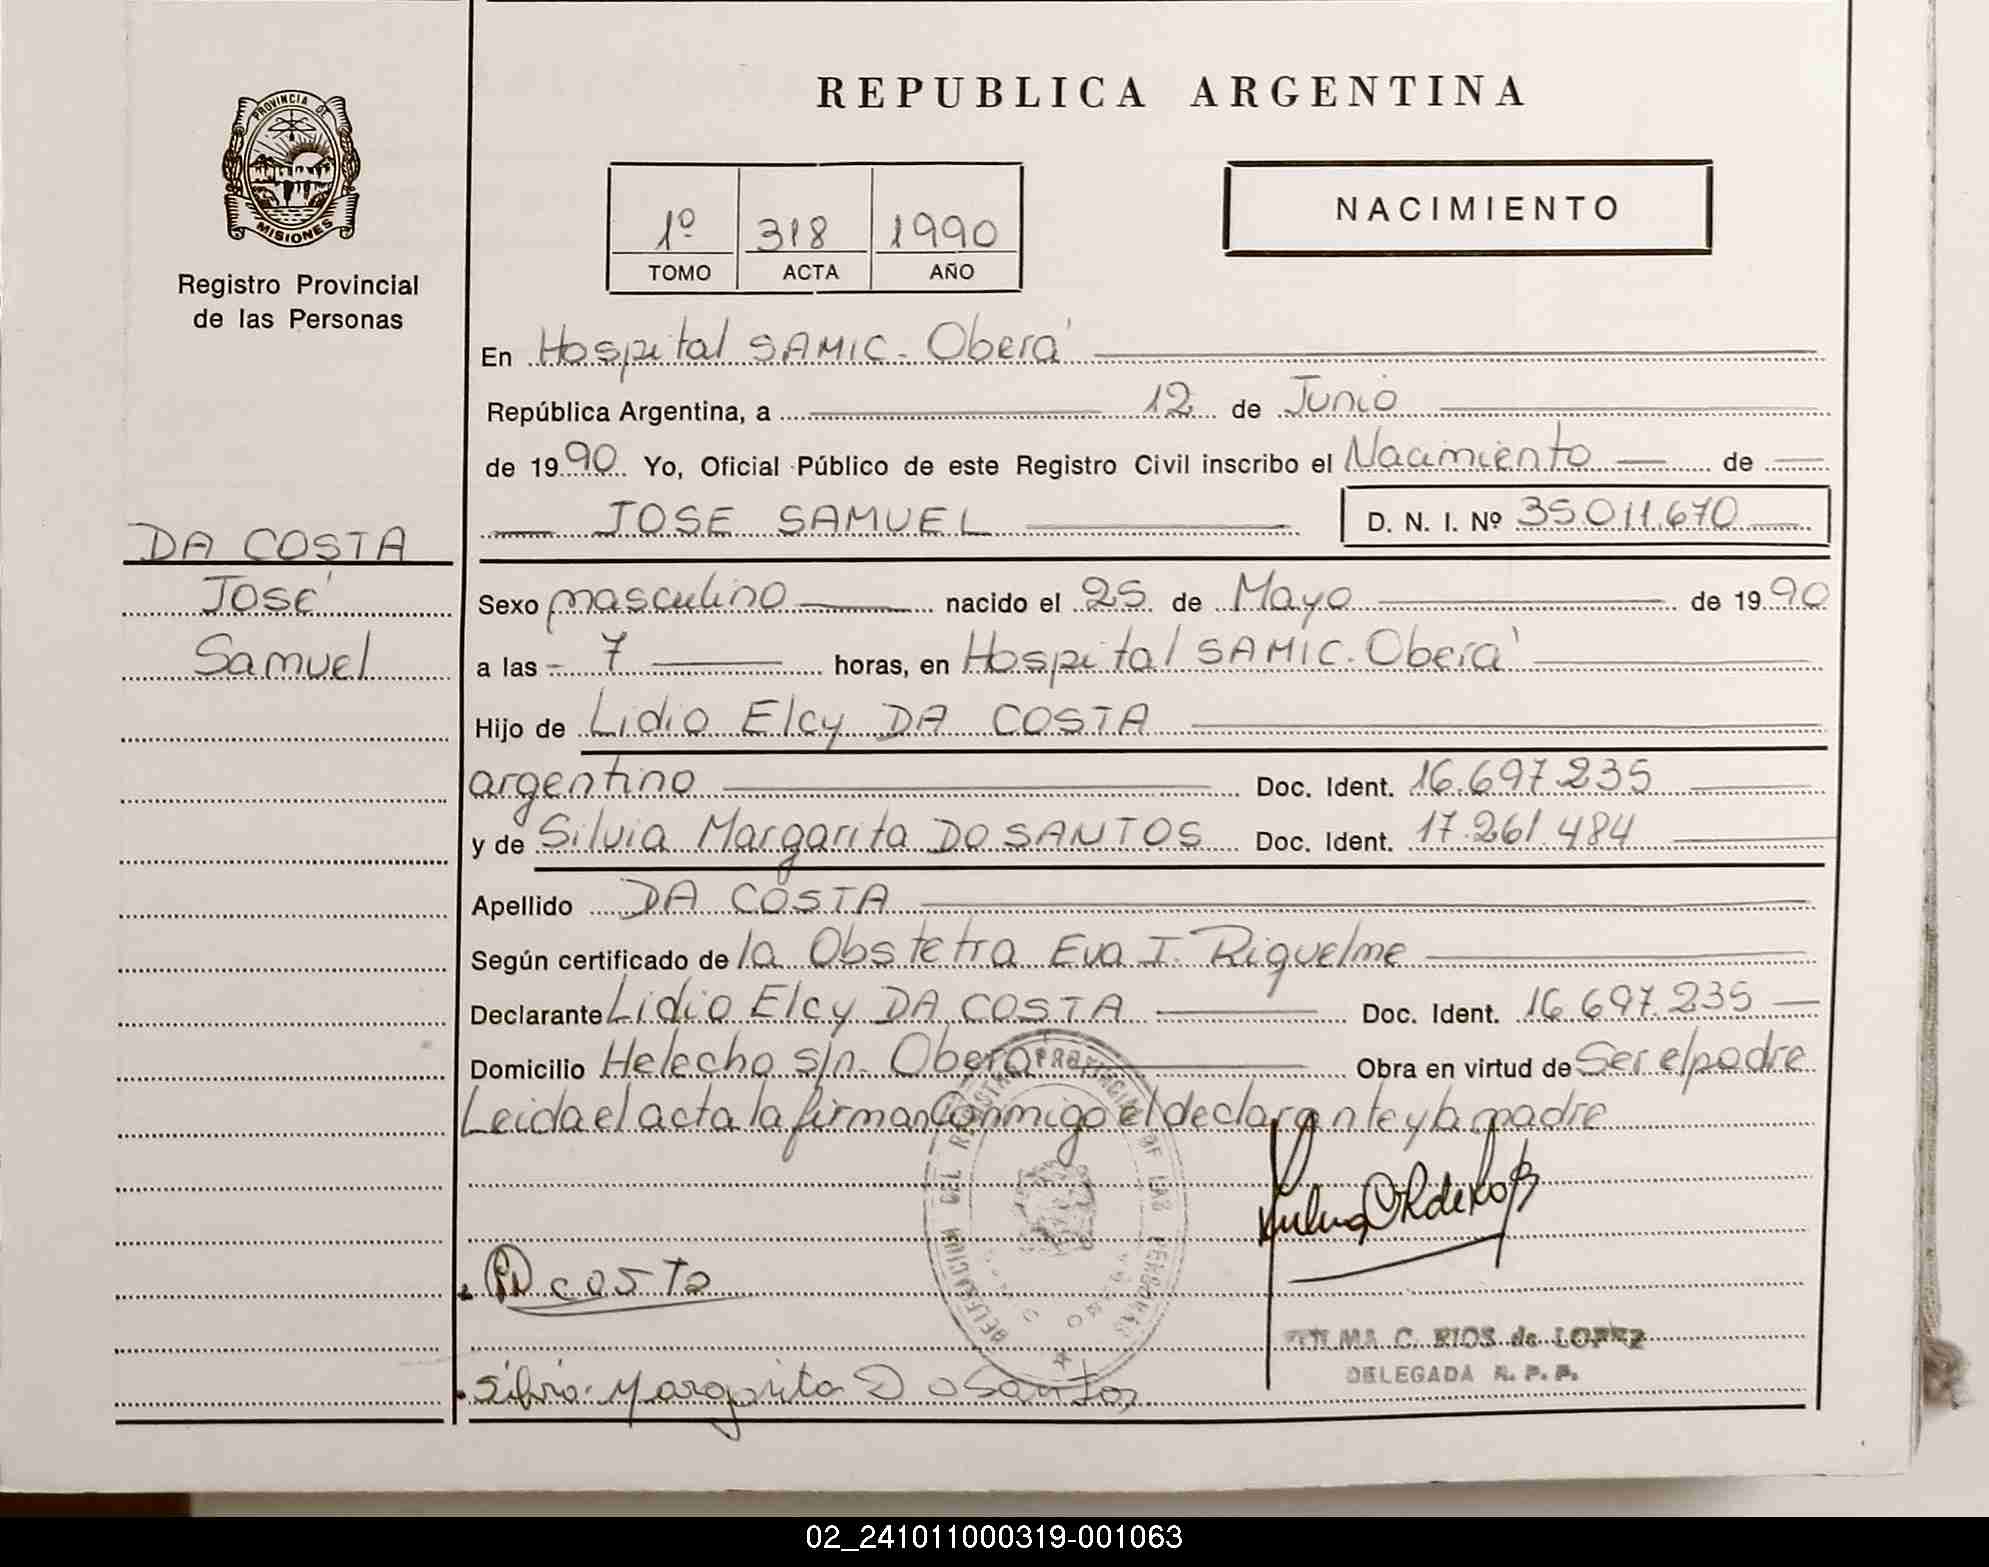 REPUBLICA ARGENTINA
PROVINCIA DE
MISIONES
Registro Provincial
de las Personas
1º 318 1990
TOMO ACTA AÑO
NACIMIENTO
En Hospital SAMIC - Oberá
República Argentina, a 12 de Junio
de 1990 Yo, Oficial Público de este Registro Civil inscribo el Nacimiento de
JOSE SAMUEL D. N. I. Nº 35.011.670
DA COSTA
José
Samuel
Sexo masculino nacido el 25 de Mayo de 1990
a las 7 horas, en Hospital SAMIC. Oberá
Hijo de Lidio Elcy DA COSTA
argentino Doc. Ident. 16.697.235
y de Silvia Margarita DO SANTOS Doc. Ident. 17.261.484
Apellido DA COSTA
Según certificado de la Obstetra Eva I. Riquelme
Declarante Lidio Elcy DA COSTA Doc. Ident. 16.697.235
Domicilio Helecho s/n. Oberá Obra en virtud de Ser el padre
Leida el acta la firman Conmigo el declarante y la madre
DELEGACION DEL REGISTRO PROVINCIAL DE LAS PERSONAS
D COSTA
C. RIOS de LOPEZ
DELEGADA R. P. P.
Silvia Margarita D oSantos
02_241011000319-001063